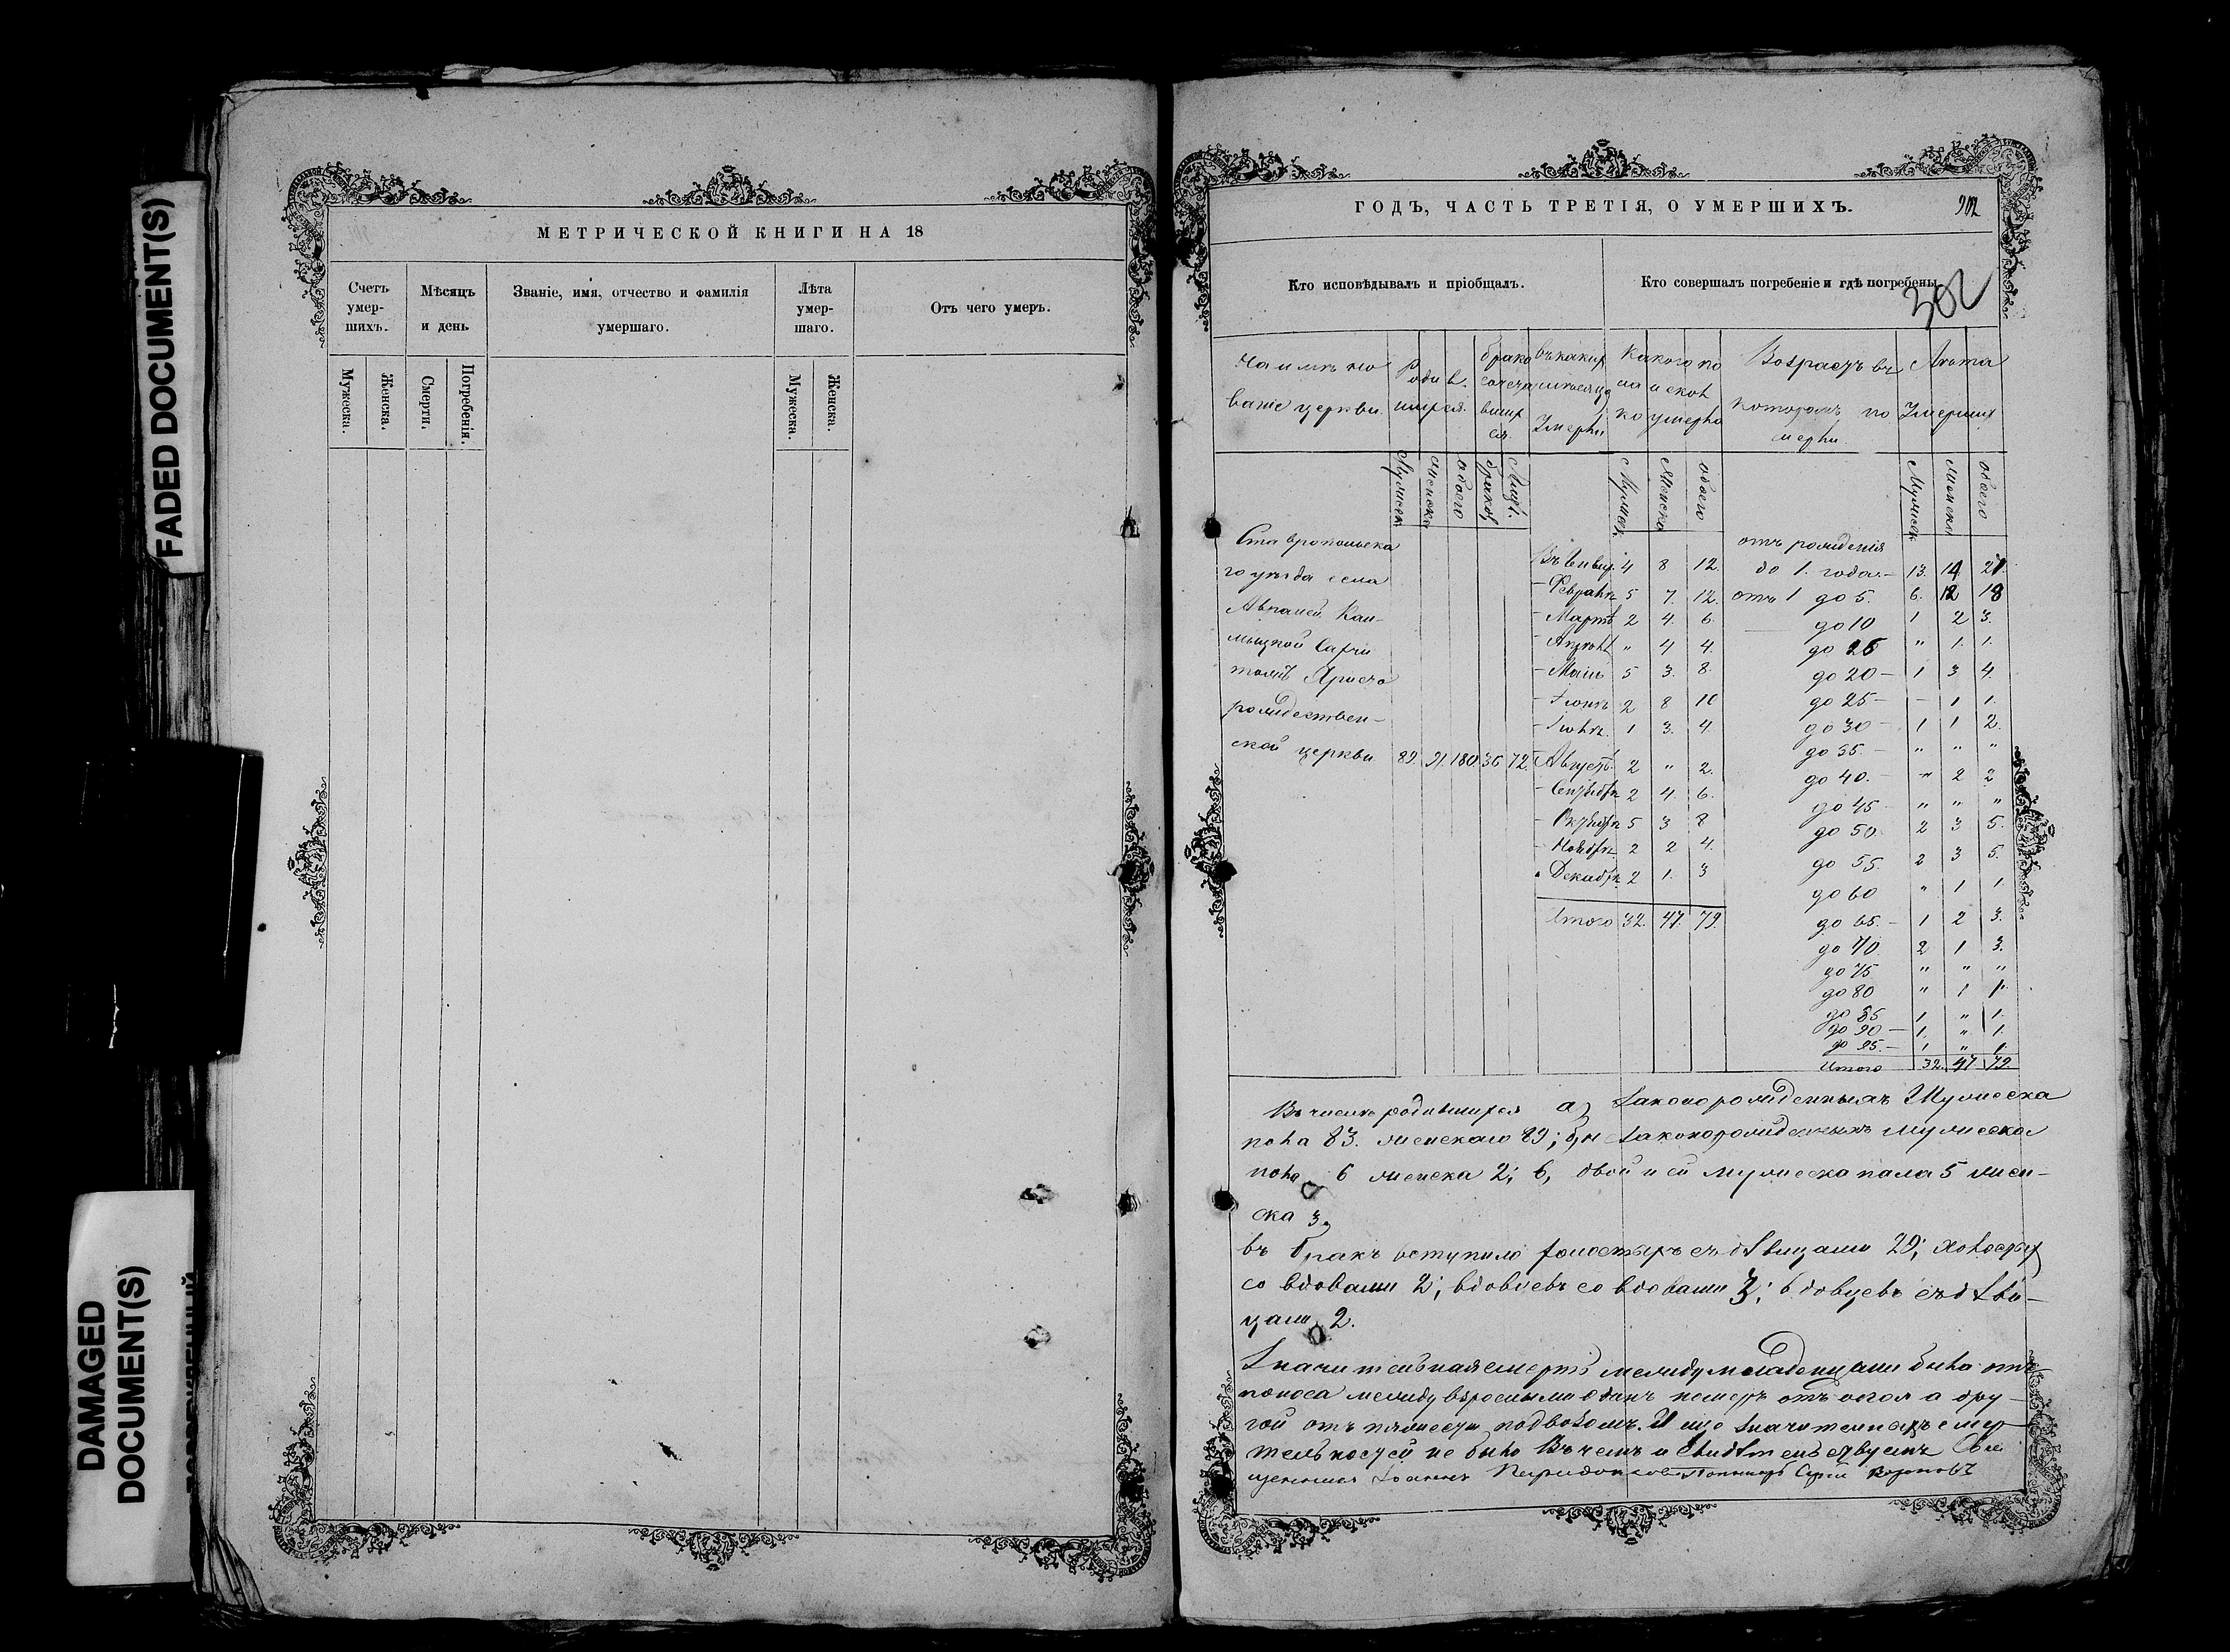 FADED DOCUMENT(S)
DAMAGED
DOCUMENT(S)
МЕТРИЧЕСКОЙ КНИГИ НА 18
Счетъ умер-шихъ.
Мѣсяцъ и день
Званіе, имя, отчество и фамилія умершаго.
Лѣта умер-шаго.
Отъ чего умеръ.
Мужеска.
Женска.
Смерти.
Погребенія.
Мужеска.
Женска.
ГОДЪ, ЧАСТЬ ТРЕТІЯ, О УМЕРШИХЪ.
302
Кто исповѣдывалъ и пріобщалъ.
Кто совершалъ погребеніе и гдѣ погребены.
302
Наимѣно
ваніе церкви.
Роди в.
шихся.
брако
сочета
вших
ся.
въ какихъ
мѣсяца
Умерли
Какого по
ла и скол
ко умерло
Возрастъ въ
которомъ по
мерли.
Лѣта
Умерших
Мужеск
Женска
обоего
браков
Лицъ.
Мужеск
Женска
обоего
Мужеск
Женска
обоего
Ставропольска
го уѣзда села
Рождествен-
ской церкви 89. 91. 180 36 72.
Въ Январ. 4 8 12.
- Февралѣ 5 7. 12.
- Мартѣ 2 4. 6.
- Апрѣлѣ " 4 4.
- Маіѣ 5 3. 8.
- Іюнѣ 2 8 10
- Іюлѣ. 1 3. 4.
- Августѣ 2 " 2.
- Сентябрѣ 2 4. 6.
- Октябрѣ 5 3 8
- Ноябрѣ 2 2 4.
- Декабрѣ 2 1. 3
Итого 32. 47. 79.
отъ рожденія
до 1. года. - 13. 14 27
отъ 1 до 5. 6. 12 18
до 10 1 2 3.
до 15 " 1. 1.
до 20 - 1 3 4.
до 25 - - 1 1.
до 30 - 1 1 2.
до 35. - " " "
до 40. - " 2 2
до 45 - " " "
до 50. 2 3 5.
до 55. 2 3 5.
до 60 " 1 1.
до 65. - 1 2 3.
до 70. 2 1 3.
до 75 " " "
до 80 " 1 1.
до 85 1 " 1.
до 90 - 1. " 1.
до 95. - 1 " 1.
Итого 32. 47 79.
Въ числѣ родившихся а) Законорожденныхъ Мужеска
пола 83. женскаго 89; б, не законорожденныхъ мужеска
пола 6 женска 2; в, двойней мужеска пола 5 жен-
ска 3.
въ бракъ вступило холостыхъ съ дѣвицами 29; холостых
со вдовами 2; вдовцевъ со вдовами 3; вдовцевъ съ дѣви-
цами 2.
Значительная смерть между младенцами была отъ
поноса между взрослыми одинъ померъ отъ а дру-
гой отъ подвозомъ. И еще значительныхъ смер-
тельностей не было Въ чемъ и свидѣтельствуемъ Свя
щенникъ Іоаннъ